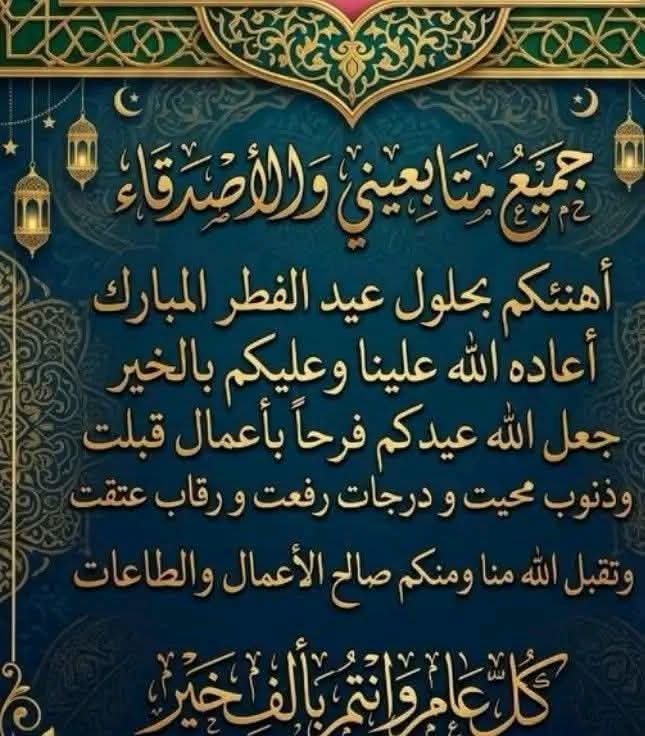 جَمِيْعُ مَتَابِعِيني وَالأَصْدِقَاء
أهنئكم بحلول عيد الفطر المبارك
أعاده الله علينا وعليكم بالخير
جعل الله عيدكم فرحاً بأعمال قبلت
وذنوب محيت و درجات رفعت و رقاب عتقت
وتقبل الله منا ومنكم صالح الأعمال والطاعات
كُلُّ عَامٍ وَانْتُمْ بِأَلفِ خَيْرٍ